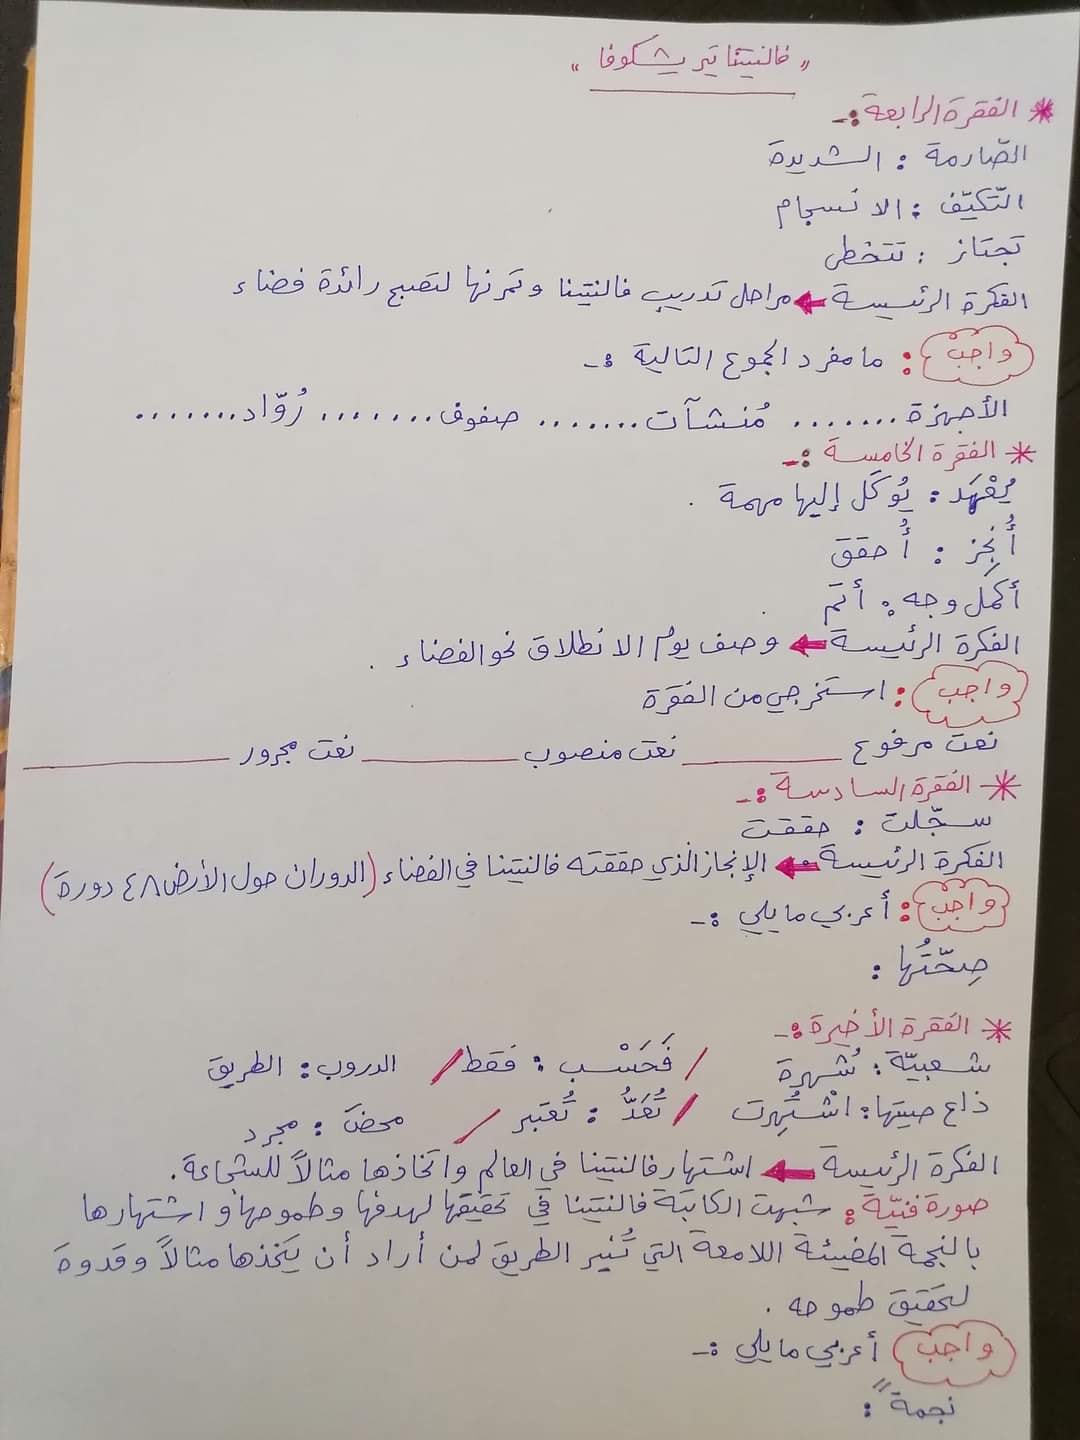 " فالنتينا تيريشكوفا "
* الفقرة الرابعة :-
الصّارمة : الشديدة
التّكيّف : الانسجام
تجتاز : تتخطى
الفكرة الرئيسية ← مراحل تدريب فالنتينا وتمرنها لتصبح رائدة فضاء
واجب : ما مفرد الجموع التالية :-
الأجهزة ....... مُنشآت ....... صفوف ....... رُوّاد .......
* الفقرة الخامسة :-
يُعْهَد : يُوكَل إليها مهمة .
أُنجِز : أُحقق
أكمل وجه : أتمّ
الفكرة الرئيسة ← وصف يوم الانطلاق نحو الفضاء .
واجب : استخرجي من الفقرة
نعت مرفوع ______ نعت منصوب ______ نعت مجرور ______
* الفقرة السادسة :-
سجّلت : حققت
الفكرة الرئيسة ← الإنجاز الذي حققته فالنتينا في الفضاء (الدوران حول الأرض ٤٨ دورة)
واجب : أعربي ما يلي :-
صِحّتُها :
* الفقرة الأخيرة :-
شعبيّة : شُهرة / فَحَسْب : فقط / الدروب : الطريق
ذاع صيتها : اشْتُهِرت / تُعَدُّ : تُعتبر / محضَ : مجرد
الفكرة الرئيسة ← اشتهار فالنتينا في العالم واتخاذها مثالاً للشجاعة .
صورة فنيّة : شبهت الكاتبة فالنتينا في تحقيقها لهدفها وطموحها واشتهارها
بالنجمة المضيئة اللامعة التي تُنير الطريق لمن أراد أن يتخذها مثالاً وقدوة
لتحقيق طموحه .
واجب أعربي ما يلي :-
نجمةً :